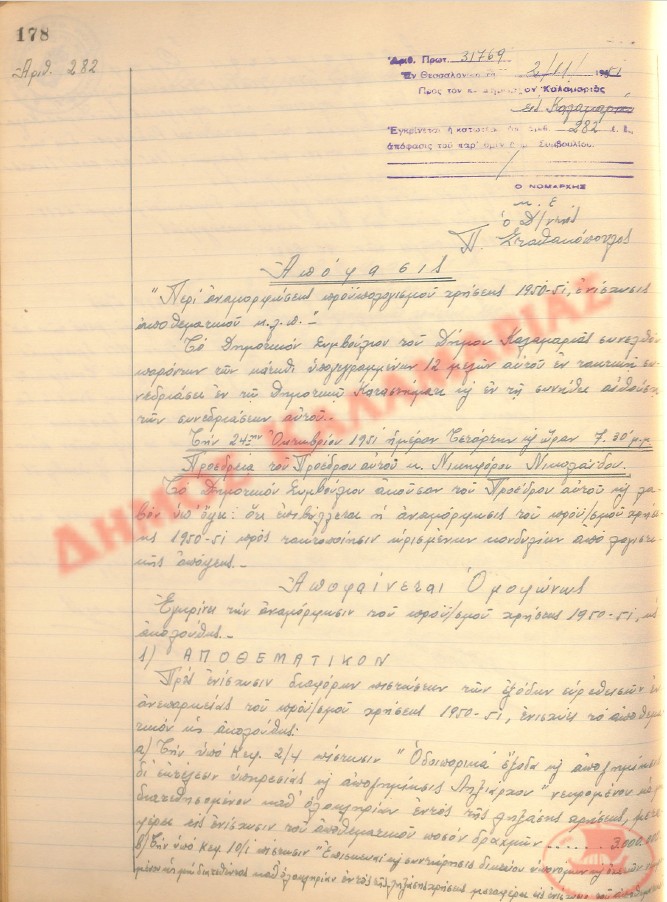 178
Ἀριθ. 282
Ἀριθ. Πρωτ. 31769
Ἐν Θεσσαλονίκῃ 2/11/1951
Πρὸς τὸν κ. Δήμαρχον Καλαμαριᾶς
Εἰς Καλαμαριὰ
Ἐγκρίνεται ἡ κατωτέρω ὑπ' ἀριθ. 282 ἐ. ἔ.
ἀπόφασις τοῦ παρ' ὑμῖν Δημ. Συμβουλίου.
Ο ΝΟΜΑΡΧΗΣ
κ. ἐ.
ὁ Δ/ντὴς
Π. Σταθακόπουλος
Ἀπόφασις
"Περὶ ἀναμορφώσεως προϋπολογισμοῦ χρήσεως 1950-51, ἐνίσχυσις
ἀποθεματικοῦ κ.λ.π.."
Τὸ Δημοτικὸν Συμβούλιον τοῦ Δήμου Καλαμαριᾶς συνελθὸν
παρόντων τῶν κάτωθι ὑπογεγραμμένων 12 μελῶν αὐτοῦ ἐν τακτικῇ συ-
νεδριάσει ἐν τῷ Δημοτικῷ Καταστήματι κ ἐν τῇ συνήθει αἰθούσῃ
τῶν συνεδριάσεων αὐτοῦ..
Τὴν 24ην Ὀκτωβρίου 1951 ἡμέραν Τετάρτην κ ὥραν 7.30 μ.μ.
Προεδρείᾳ τοῦ Προέδρου αὐτοῦ κ. Νικηφόρου Νικολαΐδου.
Τὸ Δημοτικὸν Συμβούλιον ἀκοῦσαν τοῦ Προέδρου αὐτοῦ κ λα-
βὸν ὑπ' ὄψει: ὅτι ἐπιβάλλεται ἡ ἀναμόρφωσις τοῦ προϋ/σμοῦ χρήσε-
ως 1950-51 πρὸς τακτοποίησιν ὡρισμένων κονδυλίων ἀπὸ λογιστι-
κῆς ἀπόψεως.-
Ἀποφαίνεται Ὁμοφώνως
Ἐγκρίνει τὴν ἀναμόρφωσιν τοῦ προϋ/σμοῦ χρήσεως 1950-51, ὡς
ἀκολούθως.-
1) ΑΠΟΘΕΜΑΤΙΚΟΝ
Πρὸς ἐνίσχυσιν διαφόρων πιστώσεων τῶν ἐξόδων εὑρεθεισῶν ἐν
ἀνεπαρκείᾳ τοῦ προϋ/σμοῦ χρήσεως 1950-51, ἐνισχύει τὸ ἀποθεμα-
τικὸν ὡς ἀκολούθως:
α) Τὴν ὑπὸ Κεφ. 2/4 πίστωσιν "Ὁδοιπορικὰ ἔξοδα κ ἀποζημιώσεις
δι' ἐκτέλεσιν ὑπηρεσίας κ ἀποζημιώσεις Ληξιάρχου"
διατεθησομένου καθ' ὁλοκληρίαν ἐντὸς τῆς ληξάσης χρήσεως, μετα-
φέρει εἰς ἐνίσχυσιν τοῦ ἀποθεματικοῦ ποσὸν δραχμῶν ...... 3.000.000
β) Τὴν ὑπὸ Κεφ. 10/1 πίστωσιν "Ἐπισκευαὶ κ συντηρήσεις δικτύου ὑπονόμων
μὴ διατεθέντος καθ' ὁλοκληρίαν ἐντὸς τῆς ληξάσης χρήσεως μεταφέρει εἰς ἐνίσχυσιν τοῦ ἀποθεματικοῦ
ΔΗΜΟΣ ΚΑΛΑΜΑΡΙΑΣ